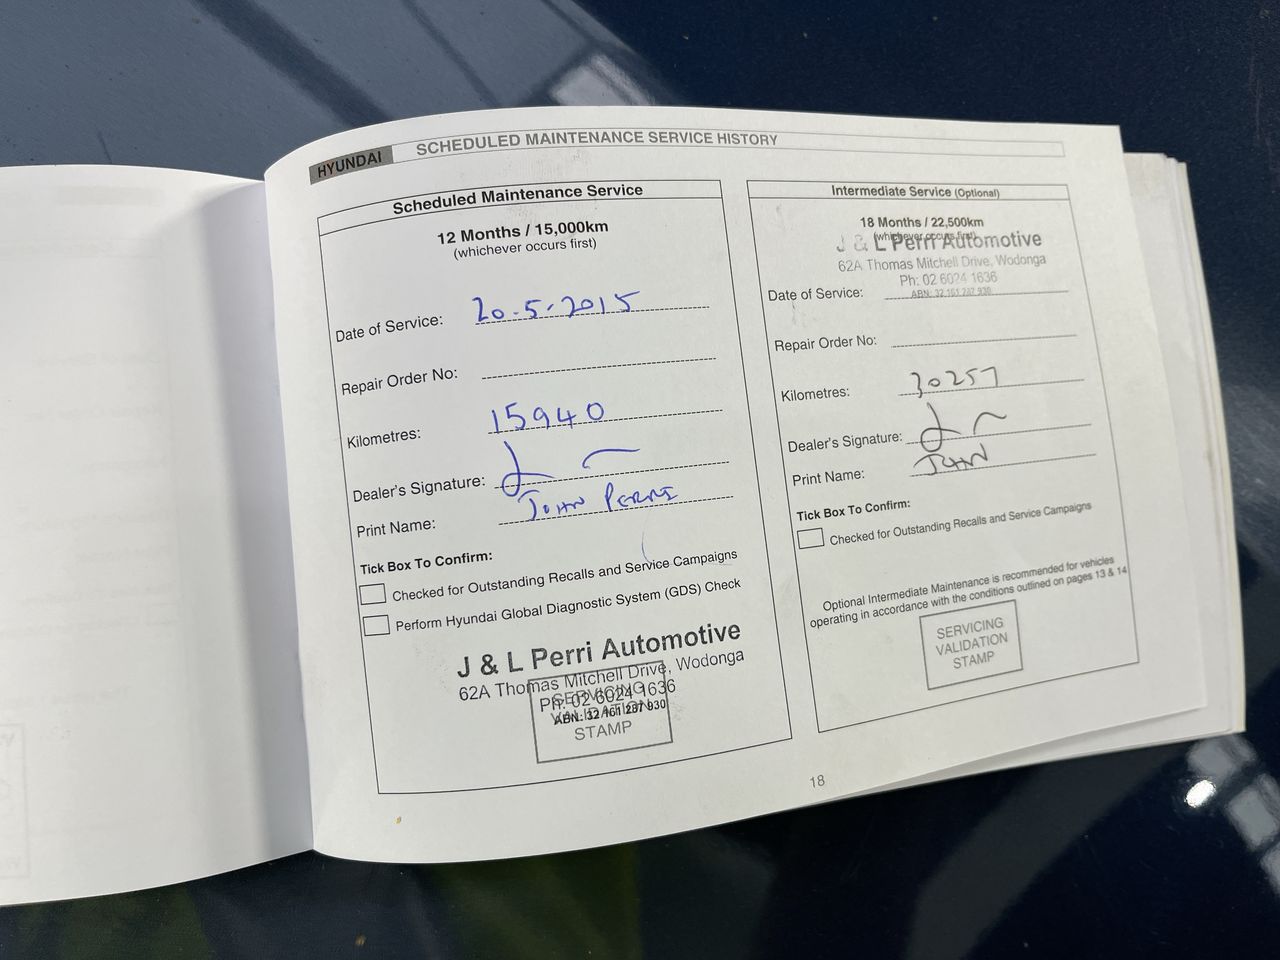 HYUNDAI
SCHEDULED MAINTENANCE SERVICE HISTORY
Scheduled Maintenance Service
12 Months / 15,000km
(whichever occurs first)
Date of Service: 20-5-2015
Repair Order No:
Kilometres: 15940
Dealer's Signature:
Print Name: JOHN PERRI
Tick Box To Confirm:
Checked for Outstanding Recalls and Service Campaigns
Perform Hyundai Global Diagnostic System (GDS) Check
J & L Perri Automotive
62A Thomas Mitchell Drive, Wodonga
Ph: 02 6024 1636
ABN: 32 161 287 930
SERVICING
VALIDATION
STAMP
Intermediate Service (Optional)
18 Months / 22,500km
(whichever occurs first)
J & L Perri Automotive
62A Thomas Mitchell Drive, Wodonga
Ph: 02 6024 1636
ABN: 32 161 287 930
Date of Service:
Repair Order No:
Kilometres: 30257
Dealer's Signature:
Print Name: JOHN
Tick Box To Confirm:
Checked for Outstanding Recalls and Service Campaigns
Optional Intermediate Maintenance is recommended for vehicles
operating in accordance with the conditions outlined on pages 13 & 14
SERVICING
VALIDATION
STAMP
18